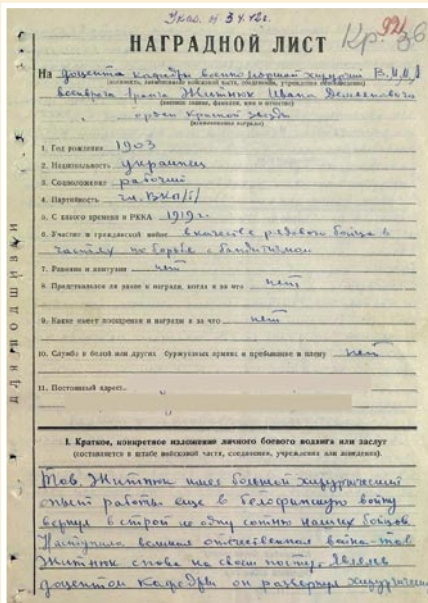 Указ. 3
Кр. Зв
НАГРАДНОЙ ЛИСТ
На доцента кафедры военно полевой хирургии В.М.М.А
военврача 1 ранга Житнюк Ивана Демьяновича
(воинское звание, фамилия, имя и отчество)
орден Красной звезды
(наименование награды)
1. Год рождения 1903
2. Национальность украинец
3. Соцположение рабочий
4. Партийность чл. ВКП/б/
5. С какого времени в РККА 1919 г.
6. Участие в гражданской войне в качестве рядового бойца в
частях по борьбе с бандитизмом
7. Ранения и контузии нет
8. Представлялся ли ранее к награде, когда и за что нет
9. Какие имеет поощрения и награды и за что нет
10. Служба в белой или других буржуазных армиях и пребывание в плену нет
11. Постоянный адрес
ДЛЯ ПОДШИВКИ
I. Краткое, конкретное изложение личного боевого подвига или заслуг
(составляется в штабе войсковой части, соединения, учреждения или заведения).
Тов. Житнюк имел боевой хирургический
опыт работы еще в белофинскую войну
вернул в строй не одну сотню наших бойцов.
Наступила великая отечественная война - тов
Житнюк снова на своем посту. Являясь
доцентом кафедры он развернул